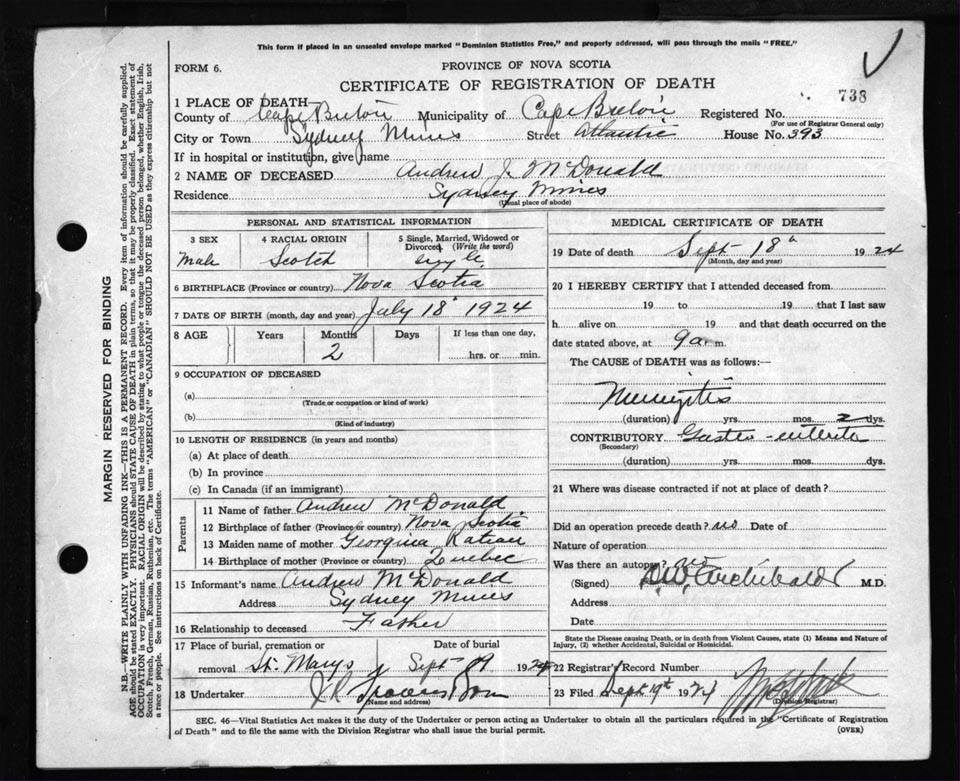 This form if placed in an unsealed envelope marked "Dominion Statistics Free," and properly addressed, will pass through the mails "FREE."
FORM 6.
PROVINCE OF NOVA SCOTIA
CERTIFICATE OF REGISTRATION OF DEATH
738
1 PLACE OF DEATH
County of Cape Breton Municipality of Cape Breton Registered No.
(For use of Registrar General only)
City or Town Sydney Mines Street Atlantic House No. 393
If in hospital or institution, give name
2 NAME OF DECEASED Andrew J. McDonald
Residence Sydney Mines
(Usual place of abode)
PERSONAL AND STATISTICAL INFORMATION
3 SEX 4 RACIAL ORIGIN 5 Single, Married, Widowed or Divorced (Write the word)
Male Scotch single
6 BIRTHPLACE (Province or country) Nova Scotia
7 DATE OF BIRTH (month, day and year) July 18 1924
8 AGE Years Months Days If less than one day,
2 hrs. or min.
9 OCCUPATION OF DECEASED
(a)
(Trade or occupation or kind of work)
(b)
(Kind of industry)
10 LENGTH OF RESIDENCE (in years and months)
(a) At place of death
(b) In province
(c) In Canada (if an immigrant)
Parents
11 Name of father Andrew McDonald
12 Birthplace of father (Province or country) Nova Scotia
13 Maiden name of mother Georgina
14 Birthplace of mother (Province or country) Quebec
15 Informant's name Andrew McDonald
Address Sydney Mines
16 Relationship to deceased Father
17 Place of burial, cremation or removal Date of burial
St. Marys Sept 19 1924
18 Undertaker J.R. & Son
(Name and address)
MEDICAL CERTIFICATE OF DEATH
19 Date of death Sept 18 1924
(Month, day and year)
20 I HEREBY CERTIFY that I attended deceased from
19 to 19 that I last saw
h alive on 19 and that death occurred on
date stated above, at 9 a. m.
The CAUSE of DEATH was as follows:—
Meningitis
(duration) yrs. mos. 2 dys.
CONTRIBUTORY Gastro-enteritis
(Secondary)
(duration) yrs. mos. dys.
21 Where was disease contracted if not at place of death?
Did an operation precede death? no Date of
Nature of operation
Was there an autopsy?
(Signed) Archibald M.D.
Address
Date
State the Disease causing Death, or in death from Violent Causes, state (1) Means and Nature of Injury, (2) whether Accidental, Suicidal or Homicidal.
22 Registrar's Record Number
23 Filed Sept 19th 1924
(Division Registrar)
SEC. 46—Vital Statistics Act makes it the duty of the Undertaker or person acting as Undertaker to obtain all the particulars required in the "Certificate of Registration
of Death" and to file the same with the Division Registrar who shall issue the burial permit.
(OVER)
MARGIN RESERVED FOR BINDING
N.B.—WRITE PLAINLY WITH UNFADING INK—THIS IS A PERMANENT RECORD. Every item of information should be carefully supplied.
AGE should be stated EXACTLY. PHYSICIANS should STATE CAUSE OF DEATH in plain terms, so that it may be properly classified. Exact statement of
OCCUPATION is very important. RACIAL ORIGIN will be described by stating to what people or tongue the deceased person belonged, whether English, Irish,
Scotch, French, German, Russian, Ruthenian, etc. The terms "AMERICAN" or "CANADIAN" SHOULD NOT BE USED as they express citizenship but not
a race or people. See instructions on back of Certificate.